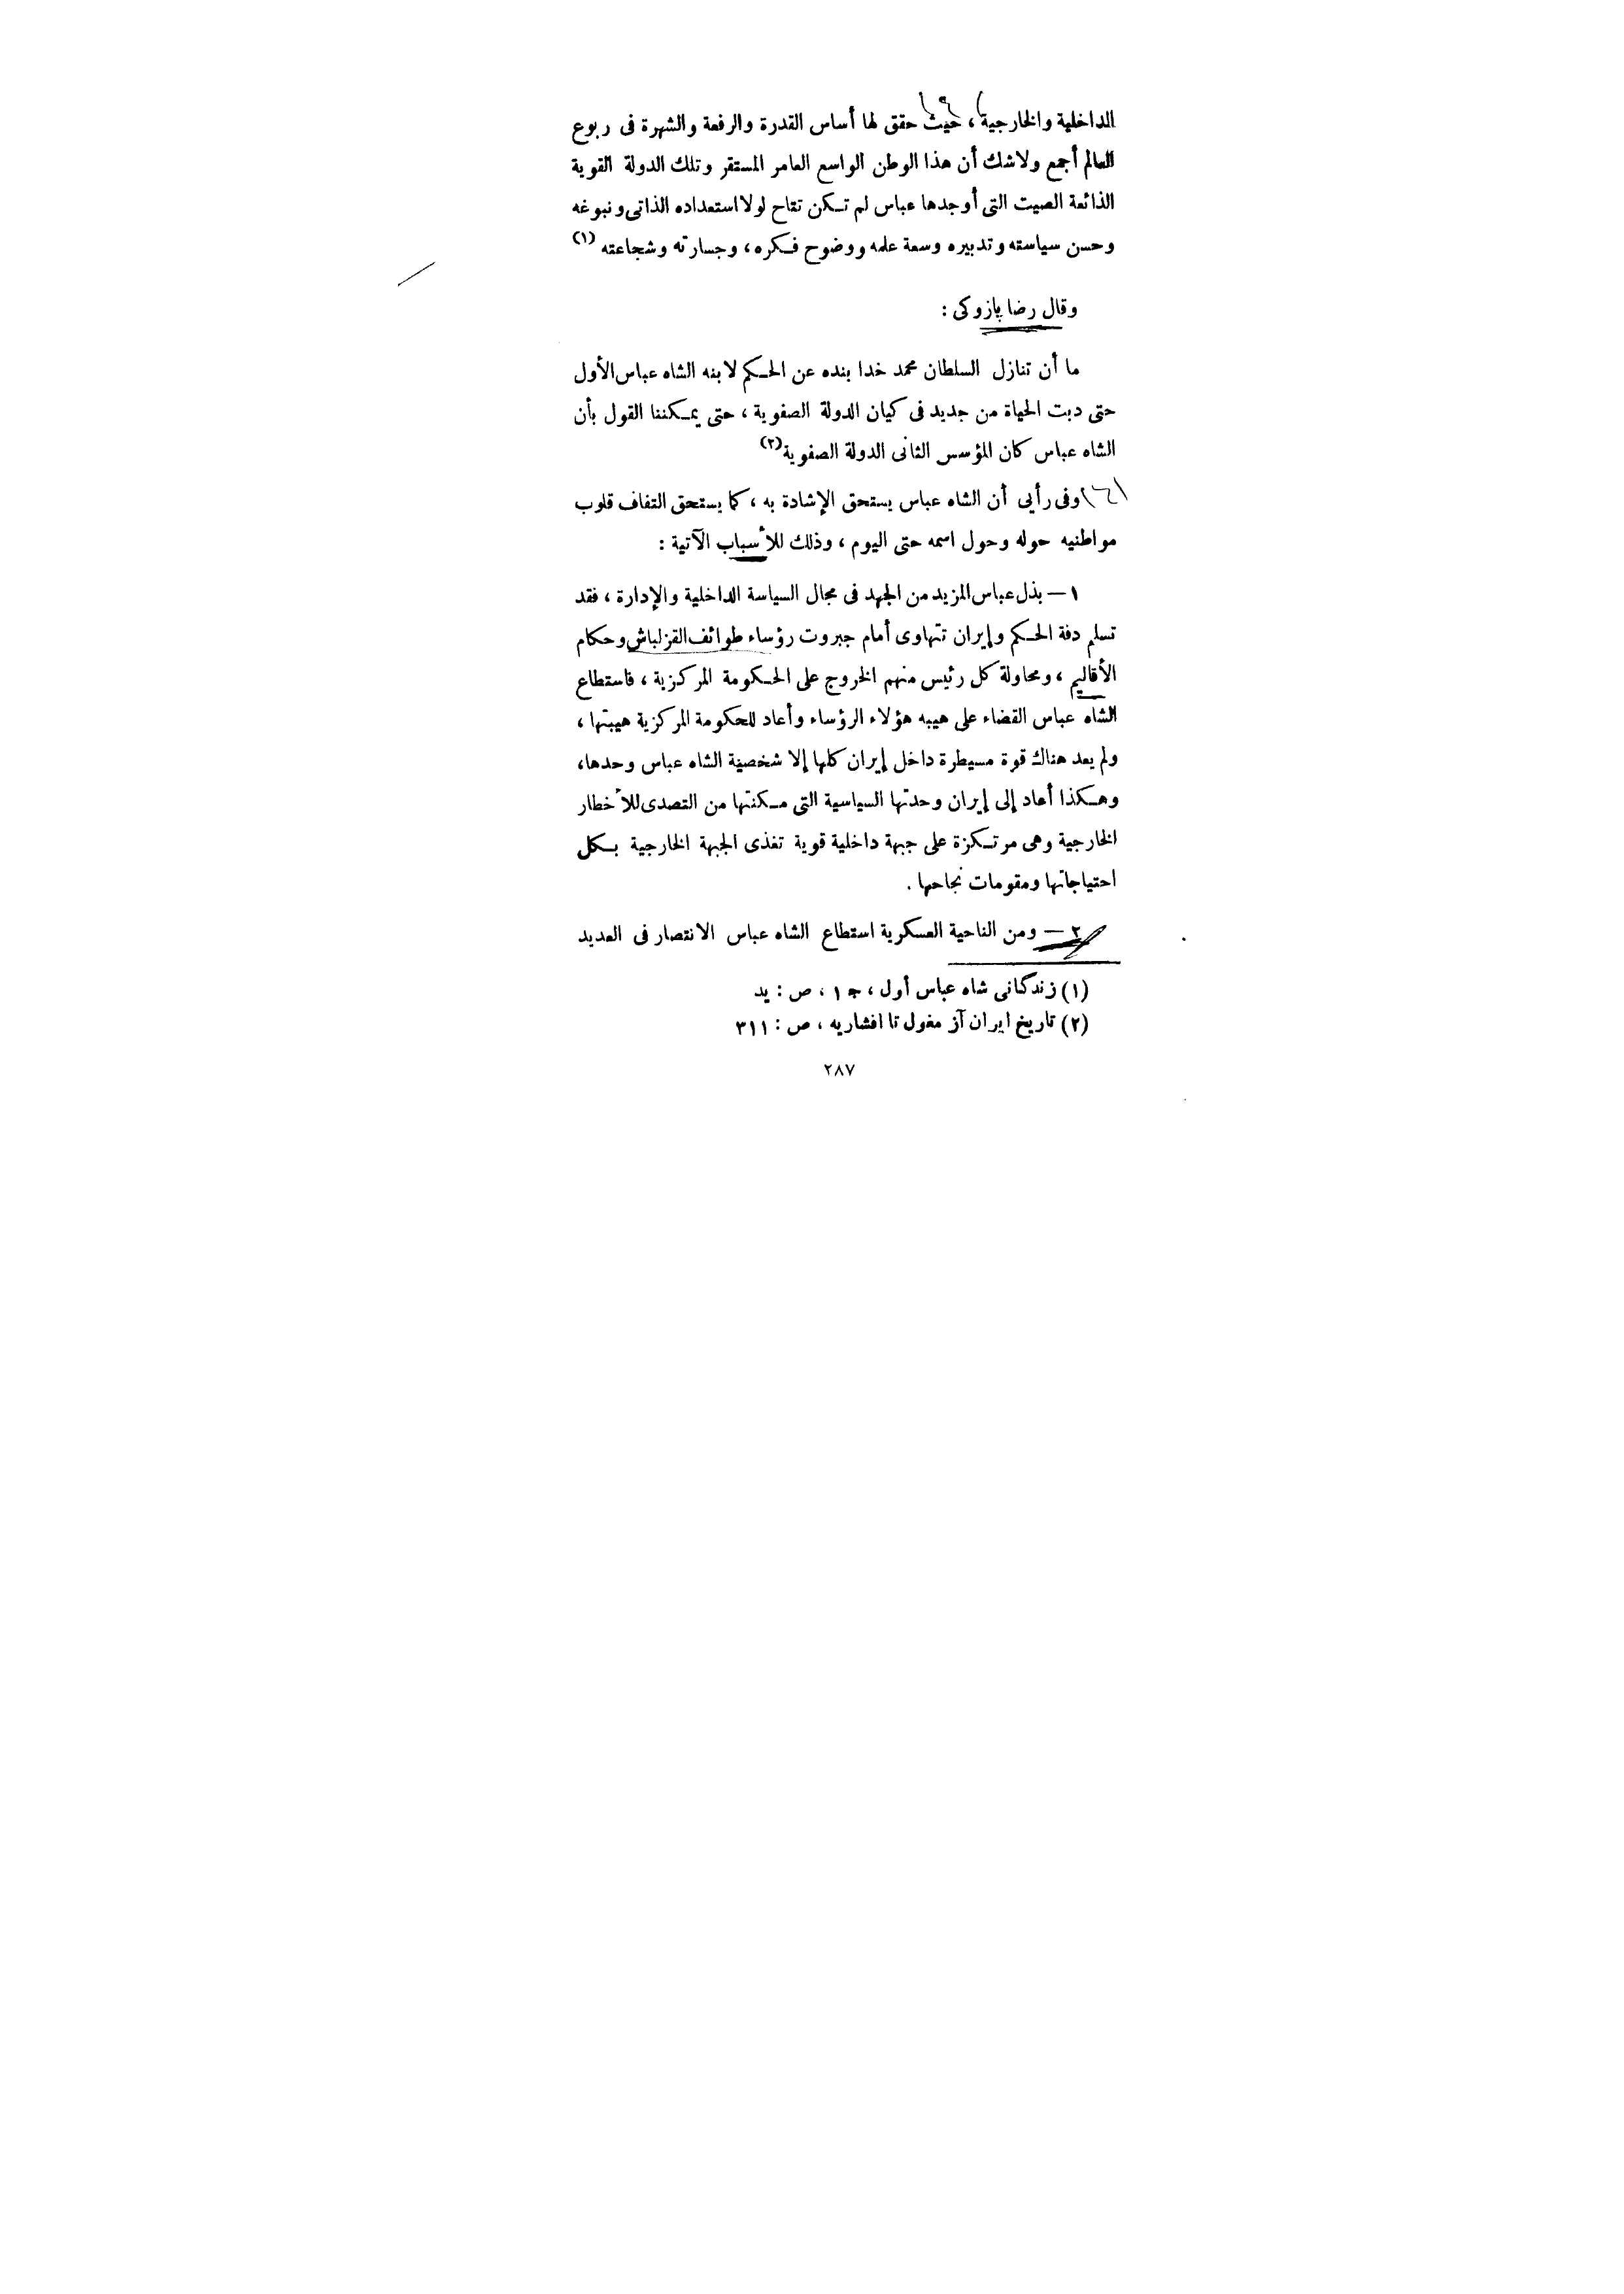 الداخلية والخارجية ، حيث حقق لها أساس القدرة والرفعة والشهرة فى ربوع
العالم أجمع ولاشك أن هذا الوطن الواسع العامر المستقر وتلك الدولة القوية
الذائعة الصيت التى أوجدها عباس لم تكن تتاح لولا استعداده الذاتى ونبوغه
وحسن سياسته وتدبيره وسعة علمه ووضوح فكره ، وجسارته وشجاعته (١)
وقال رضا پازوكى :
ما أن تنازل السلطان محمد خدا بنده عن الحكم لابنه الشاه عباس الأول
حتى دبت الحياة من جديد فى كيان الدولة الصفوية ، حتى يمكننا القول بأن
الشاه عباس كان المؤسس الثانى الدولة الصفوية (٢)
وفى رأيى أن الشاه عباس يستحق الإشادة به ، كما يستحق التفاف قلوب
مواطنيه حوله وحول اسمه حتى اليوم ، وذلك للأسباب الآتية :
١ — بذل عباس المزيد من الجهد فى مجال السياسة الداخلية والإدارة ، فقد
تسلم دفة الحكم وإيران تتهاوى أمام جبروت رؤساء طوائف القزلباش وحكام
الأقاليم ، ومحاولة كل رئيس منهم الخروج على الحكومة المركزية ، فاستطاع
الشاه عباس القضاء على هيبه هؤلاء الرؤساء وأعاد للحكومة المركزية هيبتها ،
ولم يعد هناك قوة مسيطرة داخل إيران كلها إلا شخصية الشاه عباس وحدها ،
وهكذا أعاد إلى إيران وحدتها السياسية التى مكنتها من التصدى للأخطار
الخارجية وهى مرتكزة على جبهة داخلية قوية تغذى الجبهة الخارجية بكل
احتياجاتها ومقومات نجاحها .
٢ — ومن الناحية العسكرية استطاع الشاه عباس الانتصار فى العديد
(١) زندگانى شاه عباس أول ، ج ١ ، ص : يد
(٢) تاريخ ايران آز مغول تا افشاريه ، ص : ٣١١
٢٨٧